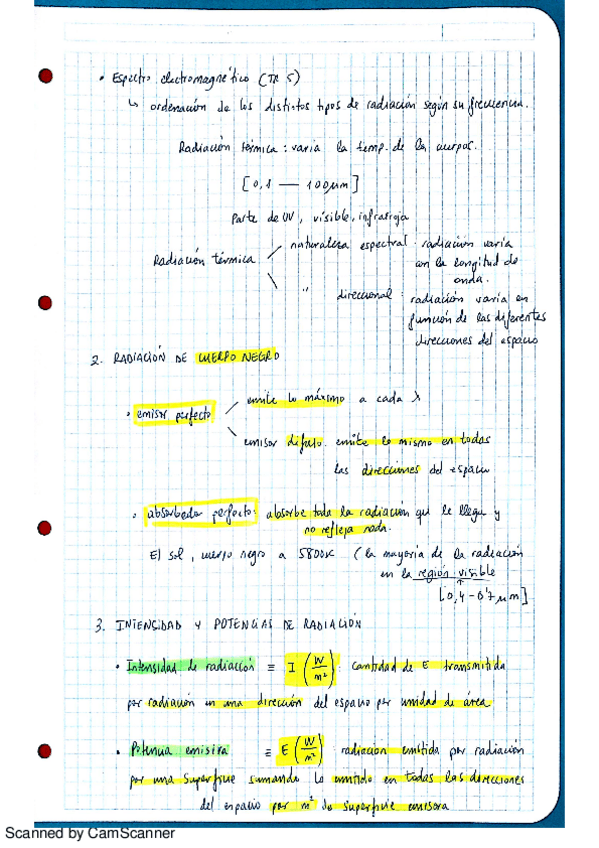 • Espectro electromagnético (TR 5)
↳ ordenación de los distintos tipos de radiación según su frecuencia.
Radiación térmica: varía la temp. de la cuerpos.
[0,1 — 100μm]
Parte de UV, visible, infrarroja
Radiación térmica
naturaleza espectral: radiación varía
con la longitud de
onda.
" direccional: radiación varía en
función de las diferentes
direcciones del espacio
2. RADIACIÓN DE CUERPO NEGRO
• emisor perfecto
emite lo máximo a cada λ
emisor difuso. emite lo mismo en todas
las direcciones del espacio
• absorbedor perfecto: absorbe toda la radiación que le llega y
no refleja nada.
El sol, cuerpo negro a 5800K (la mayoría de la radiación
en la región visible
[0,4-0'7μm]
3. INTENSIDAD Y POTENCIAS DE RADIACIÓN
• Intensidad de radiación ≡ I (W/m²): Cantidad de E transmitida
por radiación en una dirección del espacio por unidad de área
• Potencia emisiva ≡ E (W/m²) radiación emitida por radiación
por una superficie sumando lo emitido en todas las direcciones
del espacio por m² de superficie emisora
Scanned by CamScanner